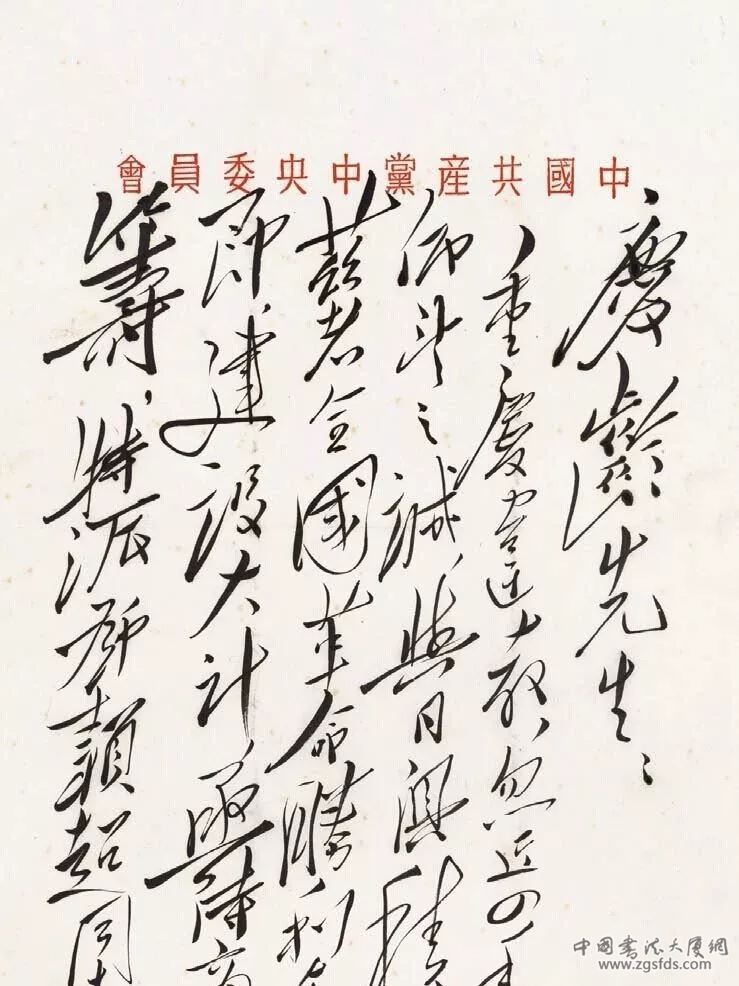 中國共産黨中央委員會
慶齡先生：
重慶違教、忽近四年
仰望之誠、與日俱積
茲者全國革命勝利在
即、建設大計、亟待商
籌、特派鄧穎超同
中国書法大厦網
www.zgsfds.com